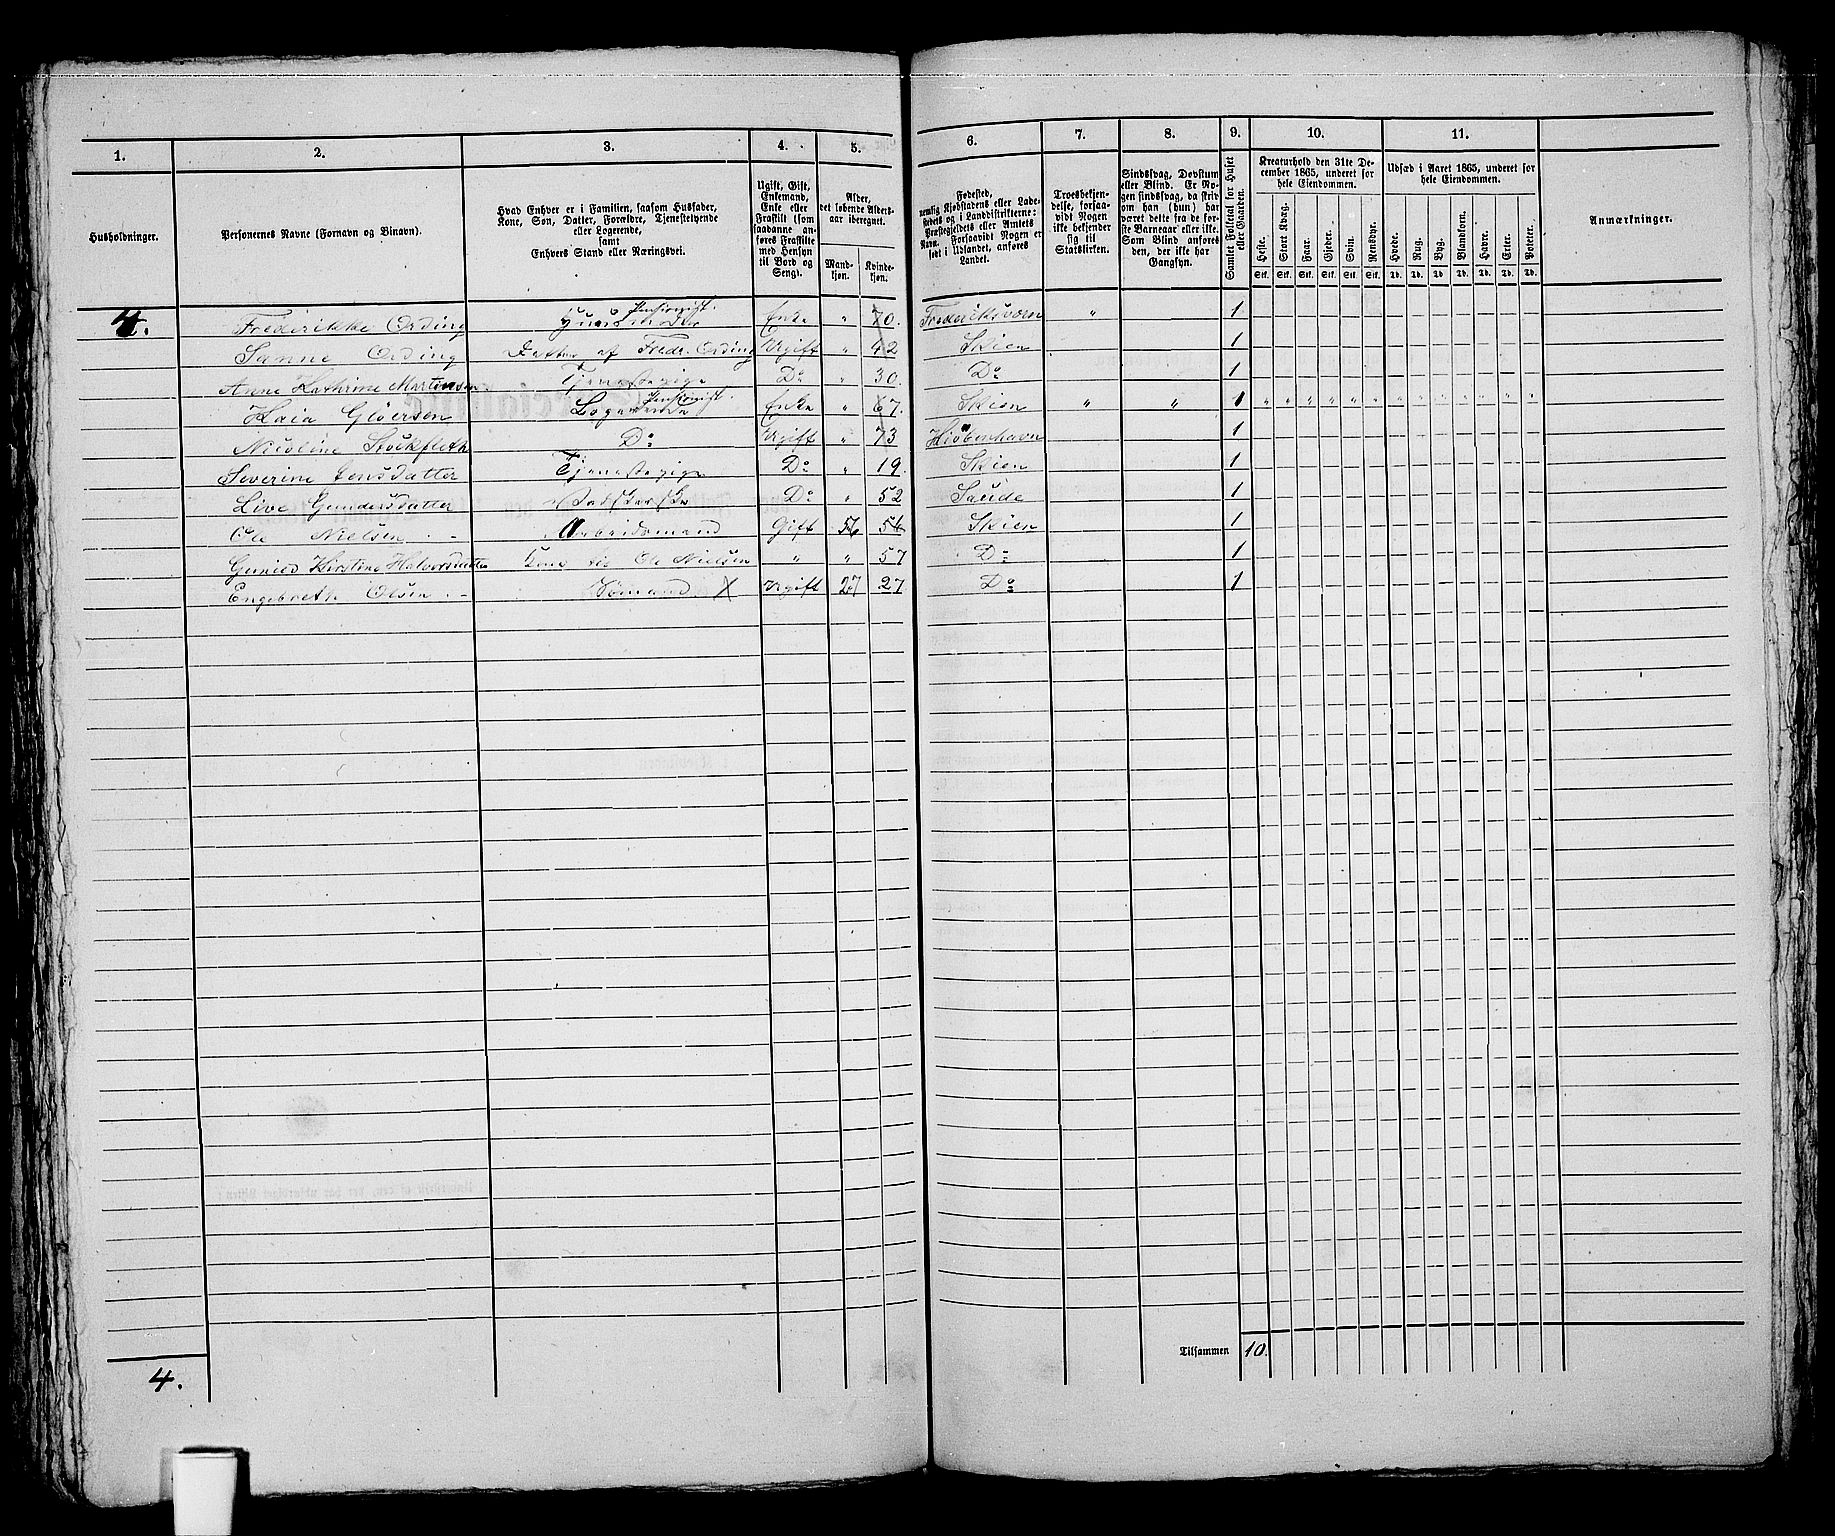 1. 2. 3. 4. 5. 6. 7. 8. 9. 10. 11.
Husholdninger.
Personernes Navne (Fornavn og Binavn).
Hvad Enhver er i Familien, saasom Husfader,
Kone, Søn, Datter, Forældre, Tjenestetyende
eller Logerende,
samt
Enhvers Stand eller Næringsvei.
Ugift, Gift,
Enkemand,
Enke eller
Fraskilt (som
saadanne an-
føres Fraskilte
med Hensyn
til Bord og
Seng).
Alder,
det løbende Alders-
aar iberegnet.
Mand-
kjøn.
Kvinde-
kjøn.
Fødested,
nemlig Kjøbstadens eller Lade-
stedets og i Landdistrikterne:
Præstegjeldets eller Amtets
Navn. Forsaavidt Nogen er
født i Udlandet, anføres
Landet.
Troesbekjen-
delse, forsaa-
vidt Nogen
ikke bekjender
sig til
Statskirken.
Sindssvag, Døvstum
eller Blind. Er No-
gen sindssvag, da skriv
om han (hun) har
været dette fra de før-
ste Barneaar eller ikke.
Som Blind anføres
den, der ikke har
Gangsyn.
Samlet Folketal for Huset
eller Gaarden.
Kreaturhold den 31te De-
cember 1865, underet for
hele Eiendommen.
Heste. Stort Kvæg. Faar. Gjeder. Svin. Rensdyr.
Stk. Stk. Stk. Stk. Stk. Stk.
Udsæd i Aaret 1865, underet for
hele Eiendommen.
Hvede. Rug. Byg. Blandkorn. Havre. Erter. Poteter.
Td. Td. Td. Td. Td. Td. Td.
Anmærkninger.
4. Frederikke Ording Huusmoder Pensionist. Enke " 70. Frederiksværn " 1
Sanne Ording Datter af Fredr. Ording Ugift " 42 Skien 1
Anne Kathrine Martinsen Tjenestepige Do " 30. Do 1
Kaia Gløersen Logerende Pensionist. Enke " 67. Skien " " 1 " " " " " " " " " " " " "
Nicoline Stockfleth Do Ugift " 73 Kiøbenhavn 1
Severine Jensdatter Tjenestepige Do " 19. Skien 1
Live Gundersdatter Vadskerske Do " 52 Saude 1
Ole Nielsen Arbeidsmand Gift 56 56 Skien 1
Gunild Kirstine Halvorsdatter Kone til Ole Nielsen " " 57 Do 1
Engebreth Olsen Sømand X Ugift 27 27 Do 1
Tilsammen 10.
4.